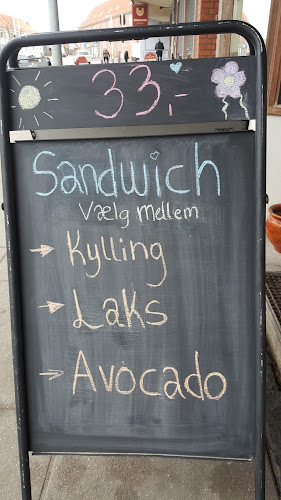 33,-
Sandwich
Vælg mellem
→ Kylling
→ Laks
→ Avocado